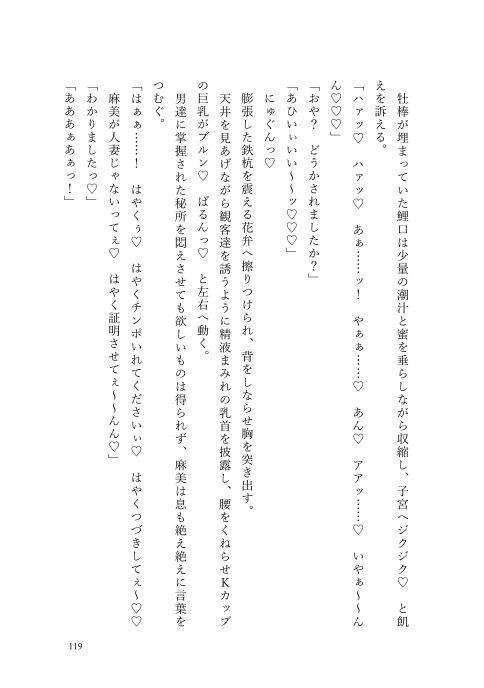 牡棒が埋まっていた鯉口は少量の潮汁と蜜を垂らしながら収縮し、子宮へジクジク♡　と飢
えを訴える。
「ハァッ♡　ハァッ♡　あぁ……ッ！　やぁぁ……♡　あん♡　アアッ……♡　いやぁ～～ん
ん♡♡♡」
「おや？　どうかされましたか？」
「あひいぃいい～～ッ♡♡♡」
にゅぐんっ♡
膨張した鉄杭を震える花弁へ擦りつけられ、背をしならせ胸を突き出す。
天井を見あげながら観客達を誘うように精液まみれの乳首を披露し、腰をくねらせKカップ
の巨乳がブルン♡　ばるんっ♡　と左右へ動く。
男達に掌握された秘所を悶えさせても欲しいものは得られず、麻美は息も絶え絶えに言葉を
つむぐ。
「はぁぁ……！　はやくぅ♡　はやくチンポいれてくださいぃ♡　はやくつづきしてぇ～♡♡
麻美が人妻じゃないってぇ♡　はやく証明させてぇ～～んん♡」
「わかりましたっ♡」
「あああぁあぁっ！」
119